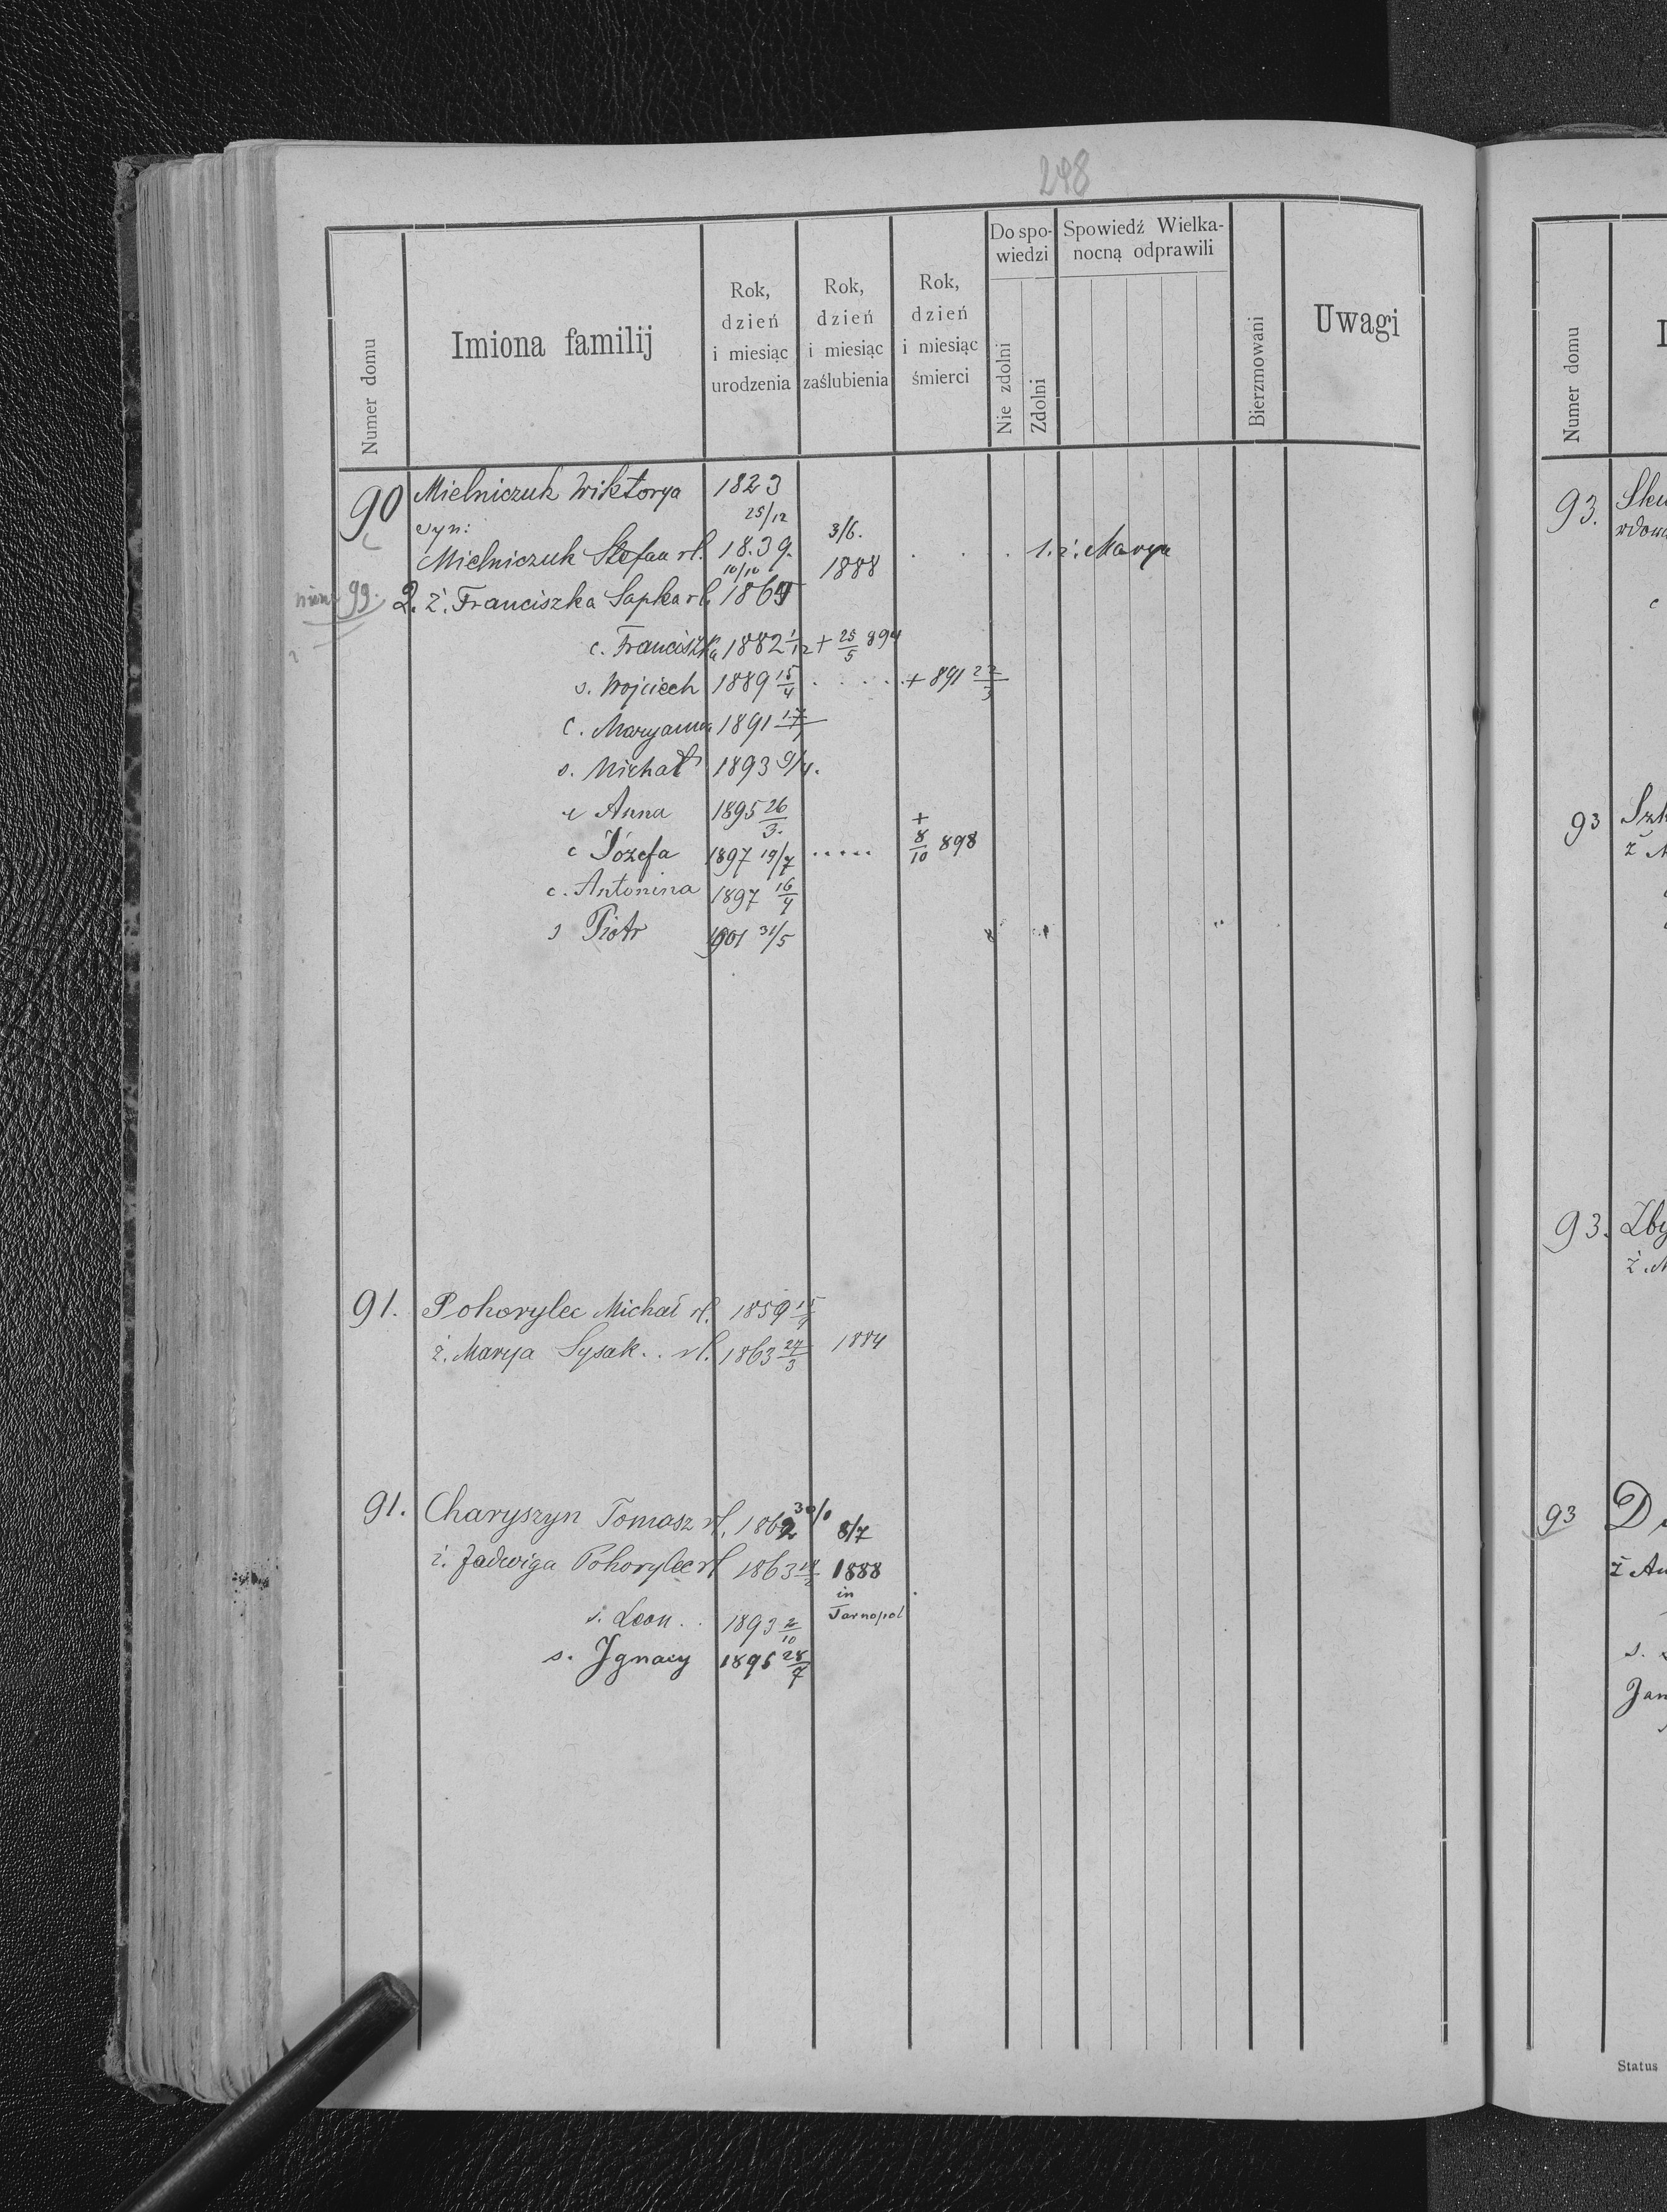 248
Numer domu
Imiona familij
Rok, dzień i miesiąc urodzenia
Rok, dzień i miesiąc zaślubienia
Rok, dzień i miesiąc śmierci
Do spowiedzi
Nie zdolni
Zdolni
Spowiedź Wielkanocną odprawili
Bierzmowani
Uwagi
90 Mielniczuk Wiktorya 1823
syn: 25/12 3/6.
Mielniczuk Stefan rl. 18.39. 1888 . . . . 1. ż. Marya
99. 2. ż. Franciszka Sapka rl. 10/10
c. Franciszka 1882 1/12 + 25/5 894
s. Wojciech 1889 15/4 . . . . . + 891 22/3
c. Maryanna 1891
s. Michał 1893 9/4.
c Anna 1895 26/3.
c Józefa 1897 19/7 ..... + 8/10 898
c. Antonina 1897
s Piotr 1901 31/5
91. Pohorylec Michał rl. 1859
ż. Marya Sysak.. rl. 1863 24/3 1884
91. Charyszyn Tomasz rl. 1862 8/7
ż. Jadwiga Pohorylec rl 1863 1888
in
s. Leon . . 1893 2/10 Tarnopol
s. Jgnacy 1896 28/7
Numer domu
I
93.
93
ż
93. Zby
ż. M
93 D
ż An
s.
Jan
Status